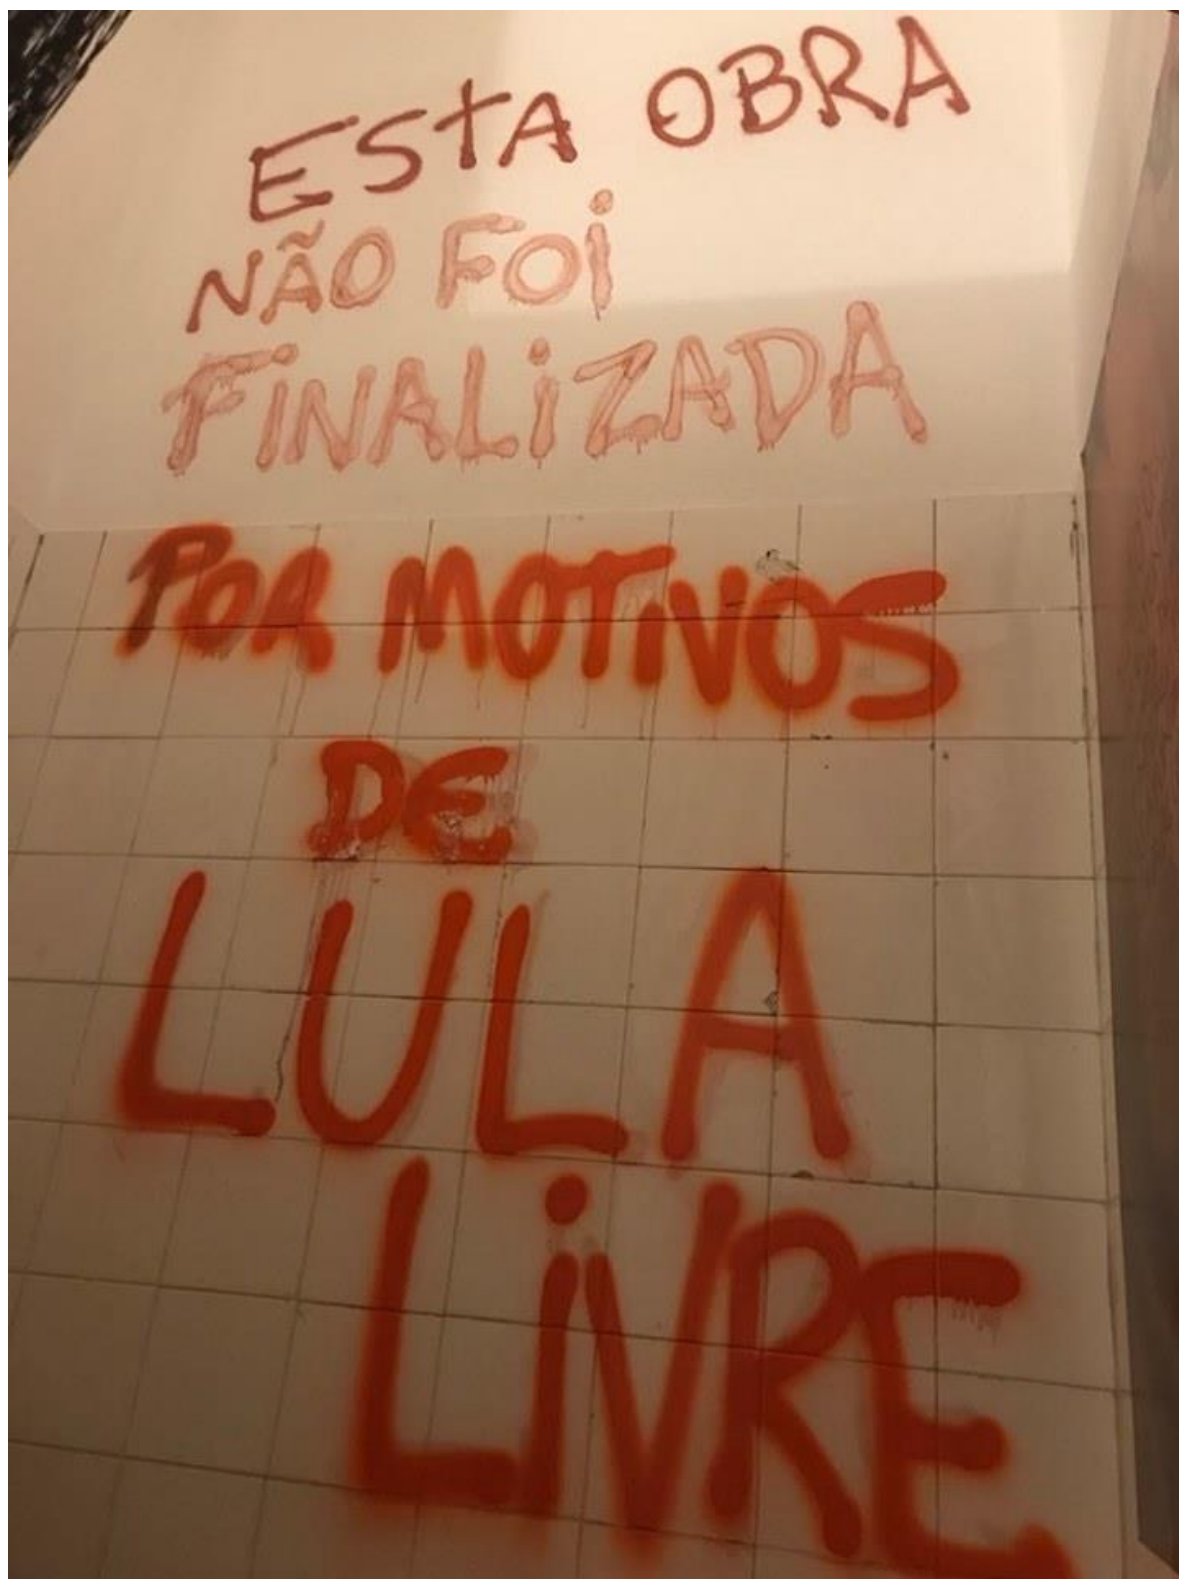 ESTA OBRA
NÃO FOI
FINALIZADA
POR MOTIVOS
DE
LULA
LIVRE